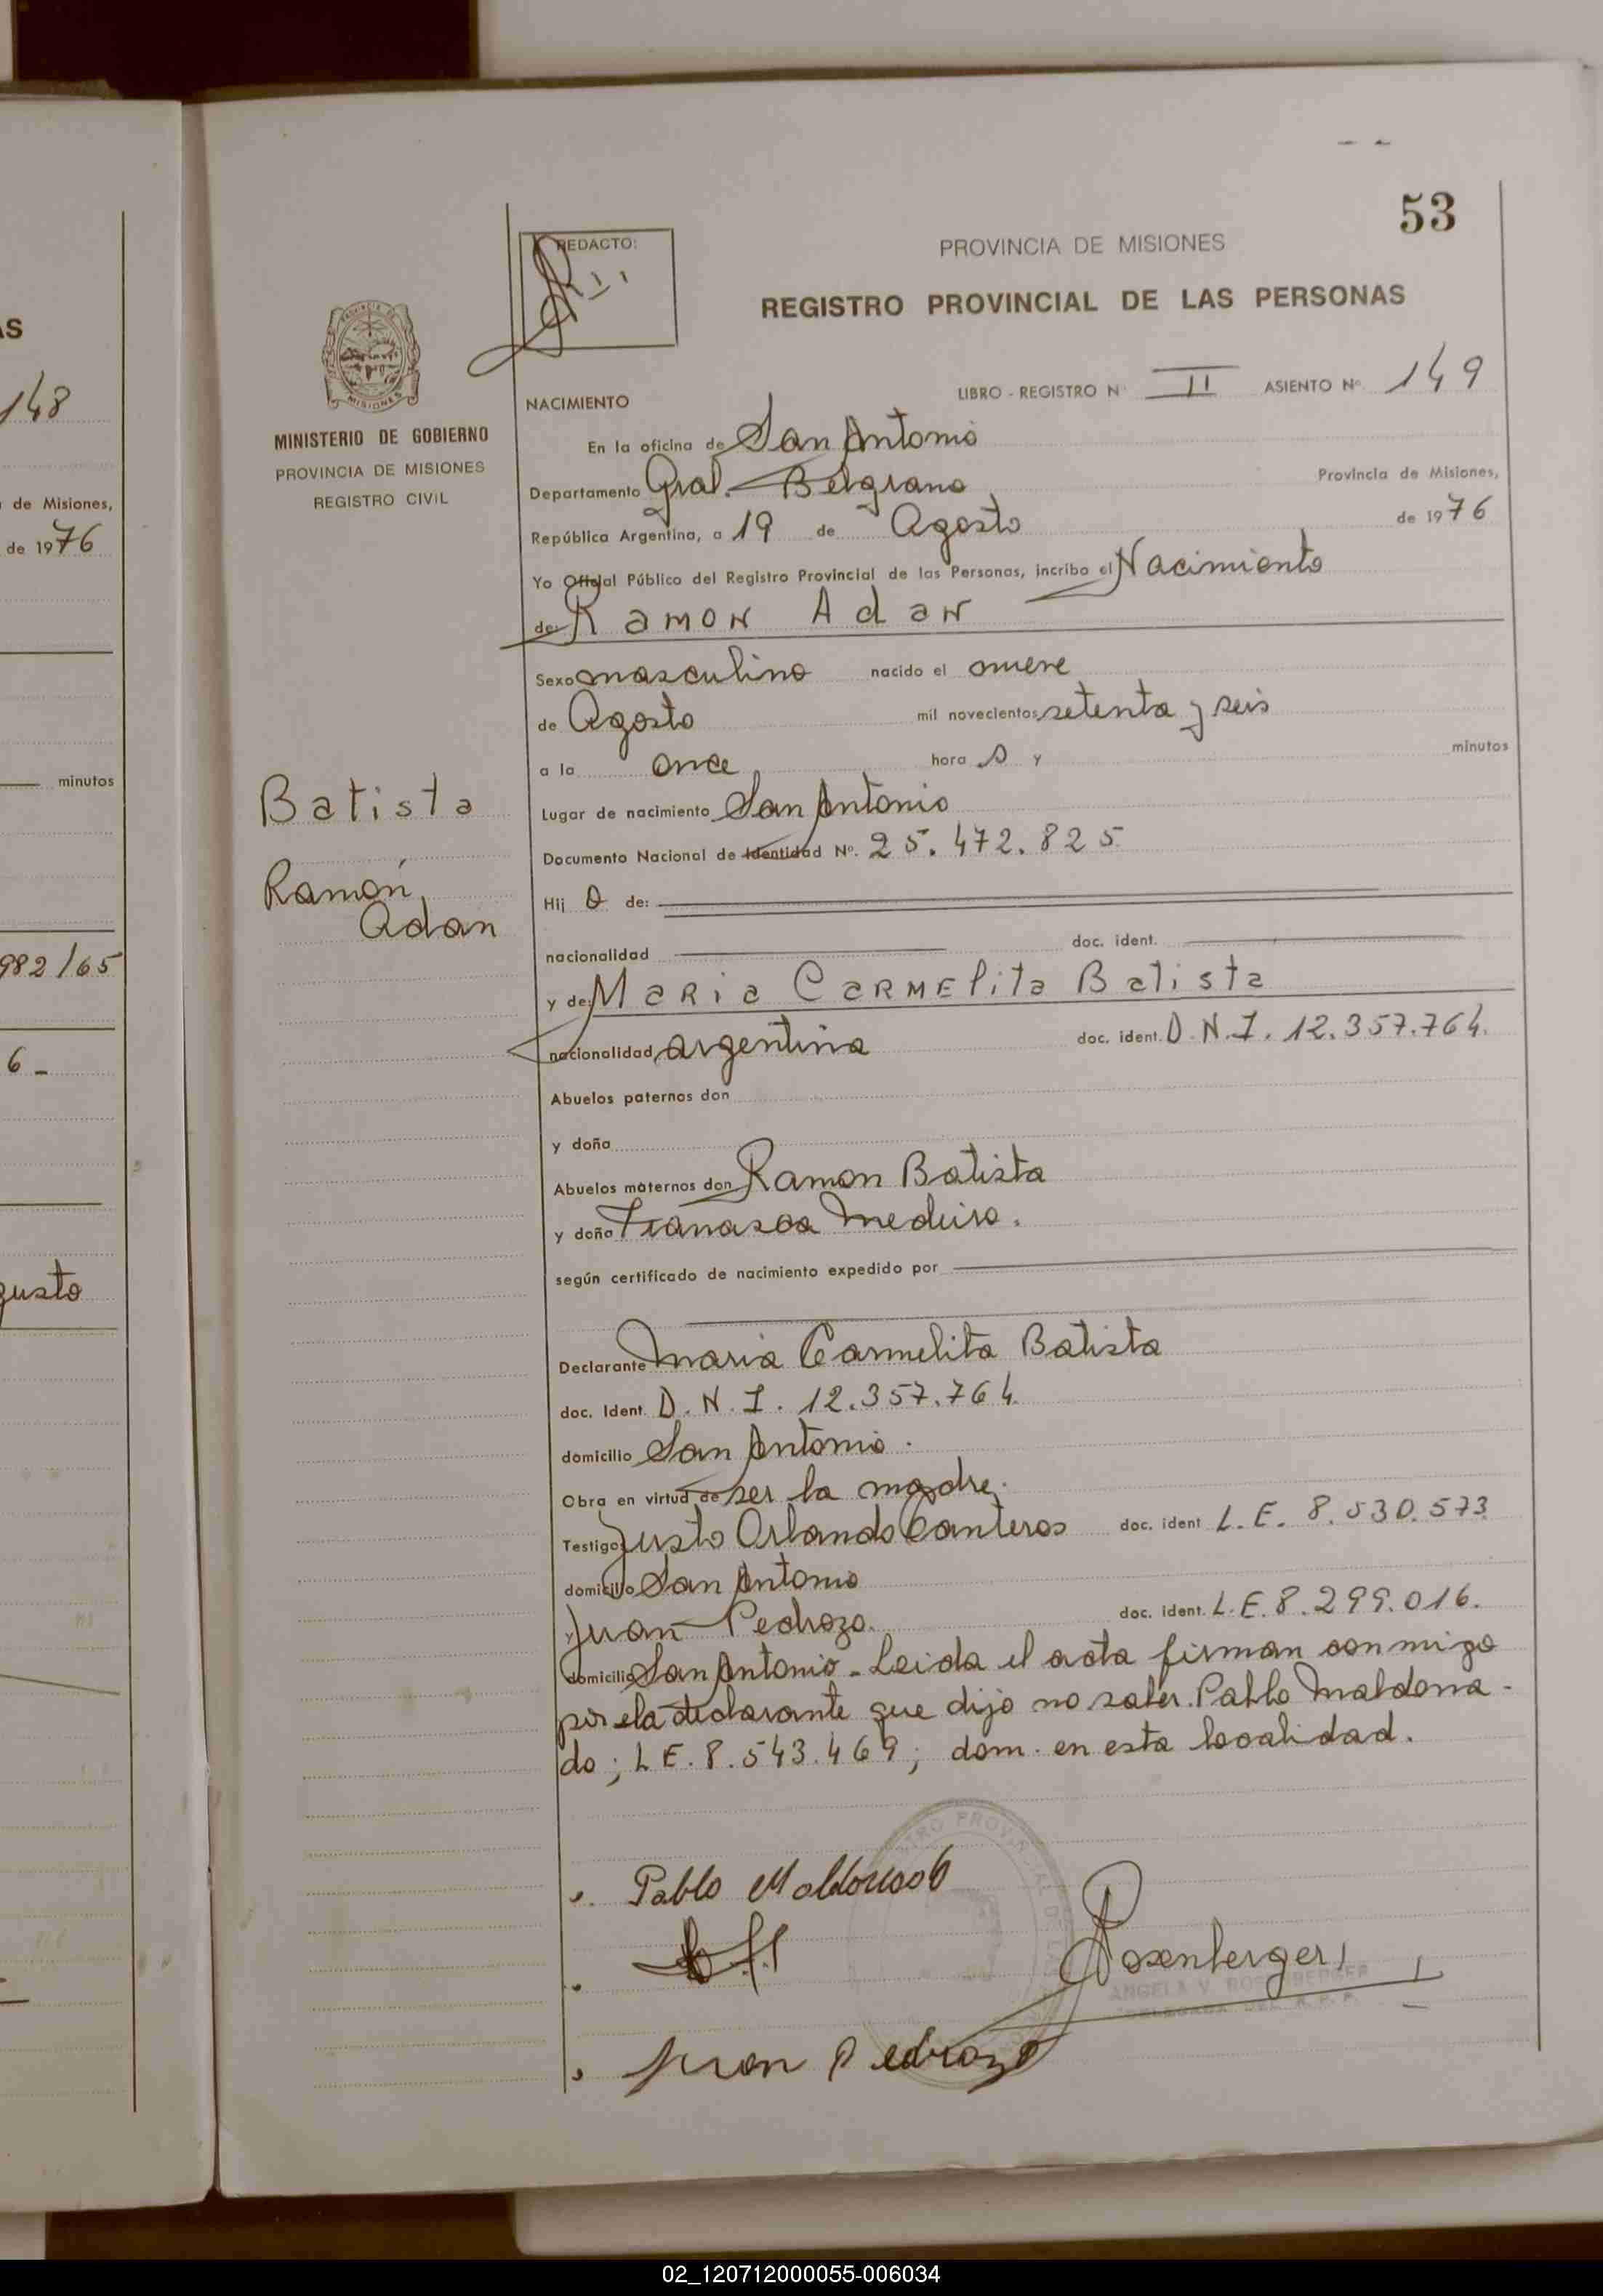 53
PROVINCIA DE MISIONES
REGISTRO PROVINCIAL DE LAS PERSONAS
REDACTO:
MISIONES
MINISTERIO DE GOBIERNO
PROVINCIA DE MISIONES
REGISTRO CIVIL
LIBRO - REGISTRO Nº II ASIENTO Nº 149
NACIMIENTO
En la oficina de San Antonio
Departamento Gral. Belgrano Provincia de Misiones,
República Argentina, a 19 de Agosto de 1976
Yo Oficial Público del Registro Provincial de las Personas, incribo el Nacimiento
de: Ramon Adan
Sexo masculino nacido el
de Agosto mil novecientos setenta y seis
a la once hora s y minutos
Batista
Ramón
Adan
Lugar de nacimiento San Antonio
Documento Nacional de Identidad Nº. 25.472.825
Hij o de:
nacionalidad doc. ident.
y de: Maria Carmelita Batista
nacionalidad argentina doc. ident. D.N.I. 12.357.764.
Abuelos paternos don
y doña
Abuelos maternos don Ramon Batista
y doña
según certificado de nacimiento expedido por
Declarante Maria Carmelita Batista
doc. Ident. D.N.I. 12.357.764.
domicilio San Antonio.
Obra en virtud de ser la madre.
Testigos Justo Orlando Canteros doc. ident L.E. 8.530.573
domicilio San Antonio
y Juan Pedrozo. doc. ident. L.E.8.299.016.
domicilio San Antonio - Leida el acta firman conmigo
por la declarante que dijo no saber. Pablo Maldona-
do; L E. 8.543.469; dom. en esta localidad.
Pablo Maldonado
Rosenberger
ANGELA V. ROSENBERGER
DELEGADA DEL R.P.P.
Juan Pedrozo
AS
148
de Misiones,
de 1976
minutos
982/65
6 -
gusto
02_120712000055-006034